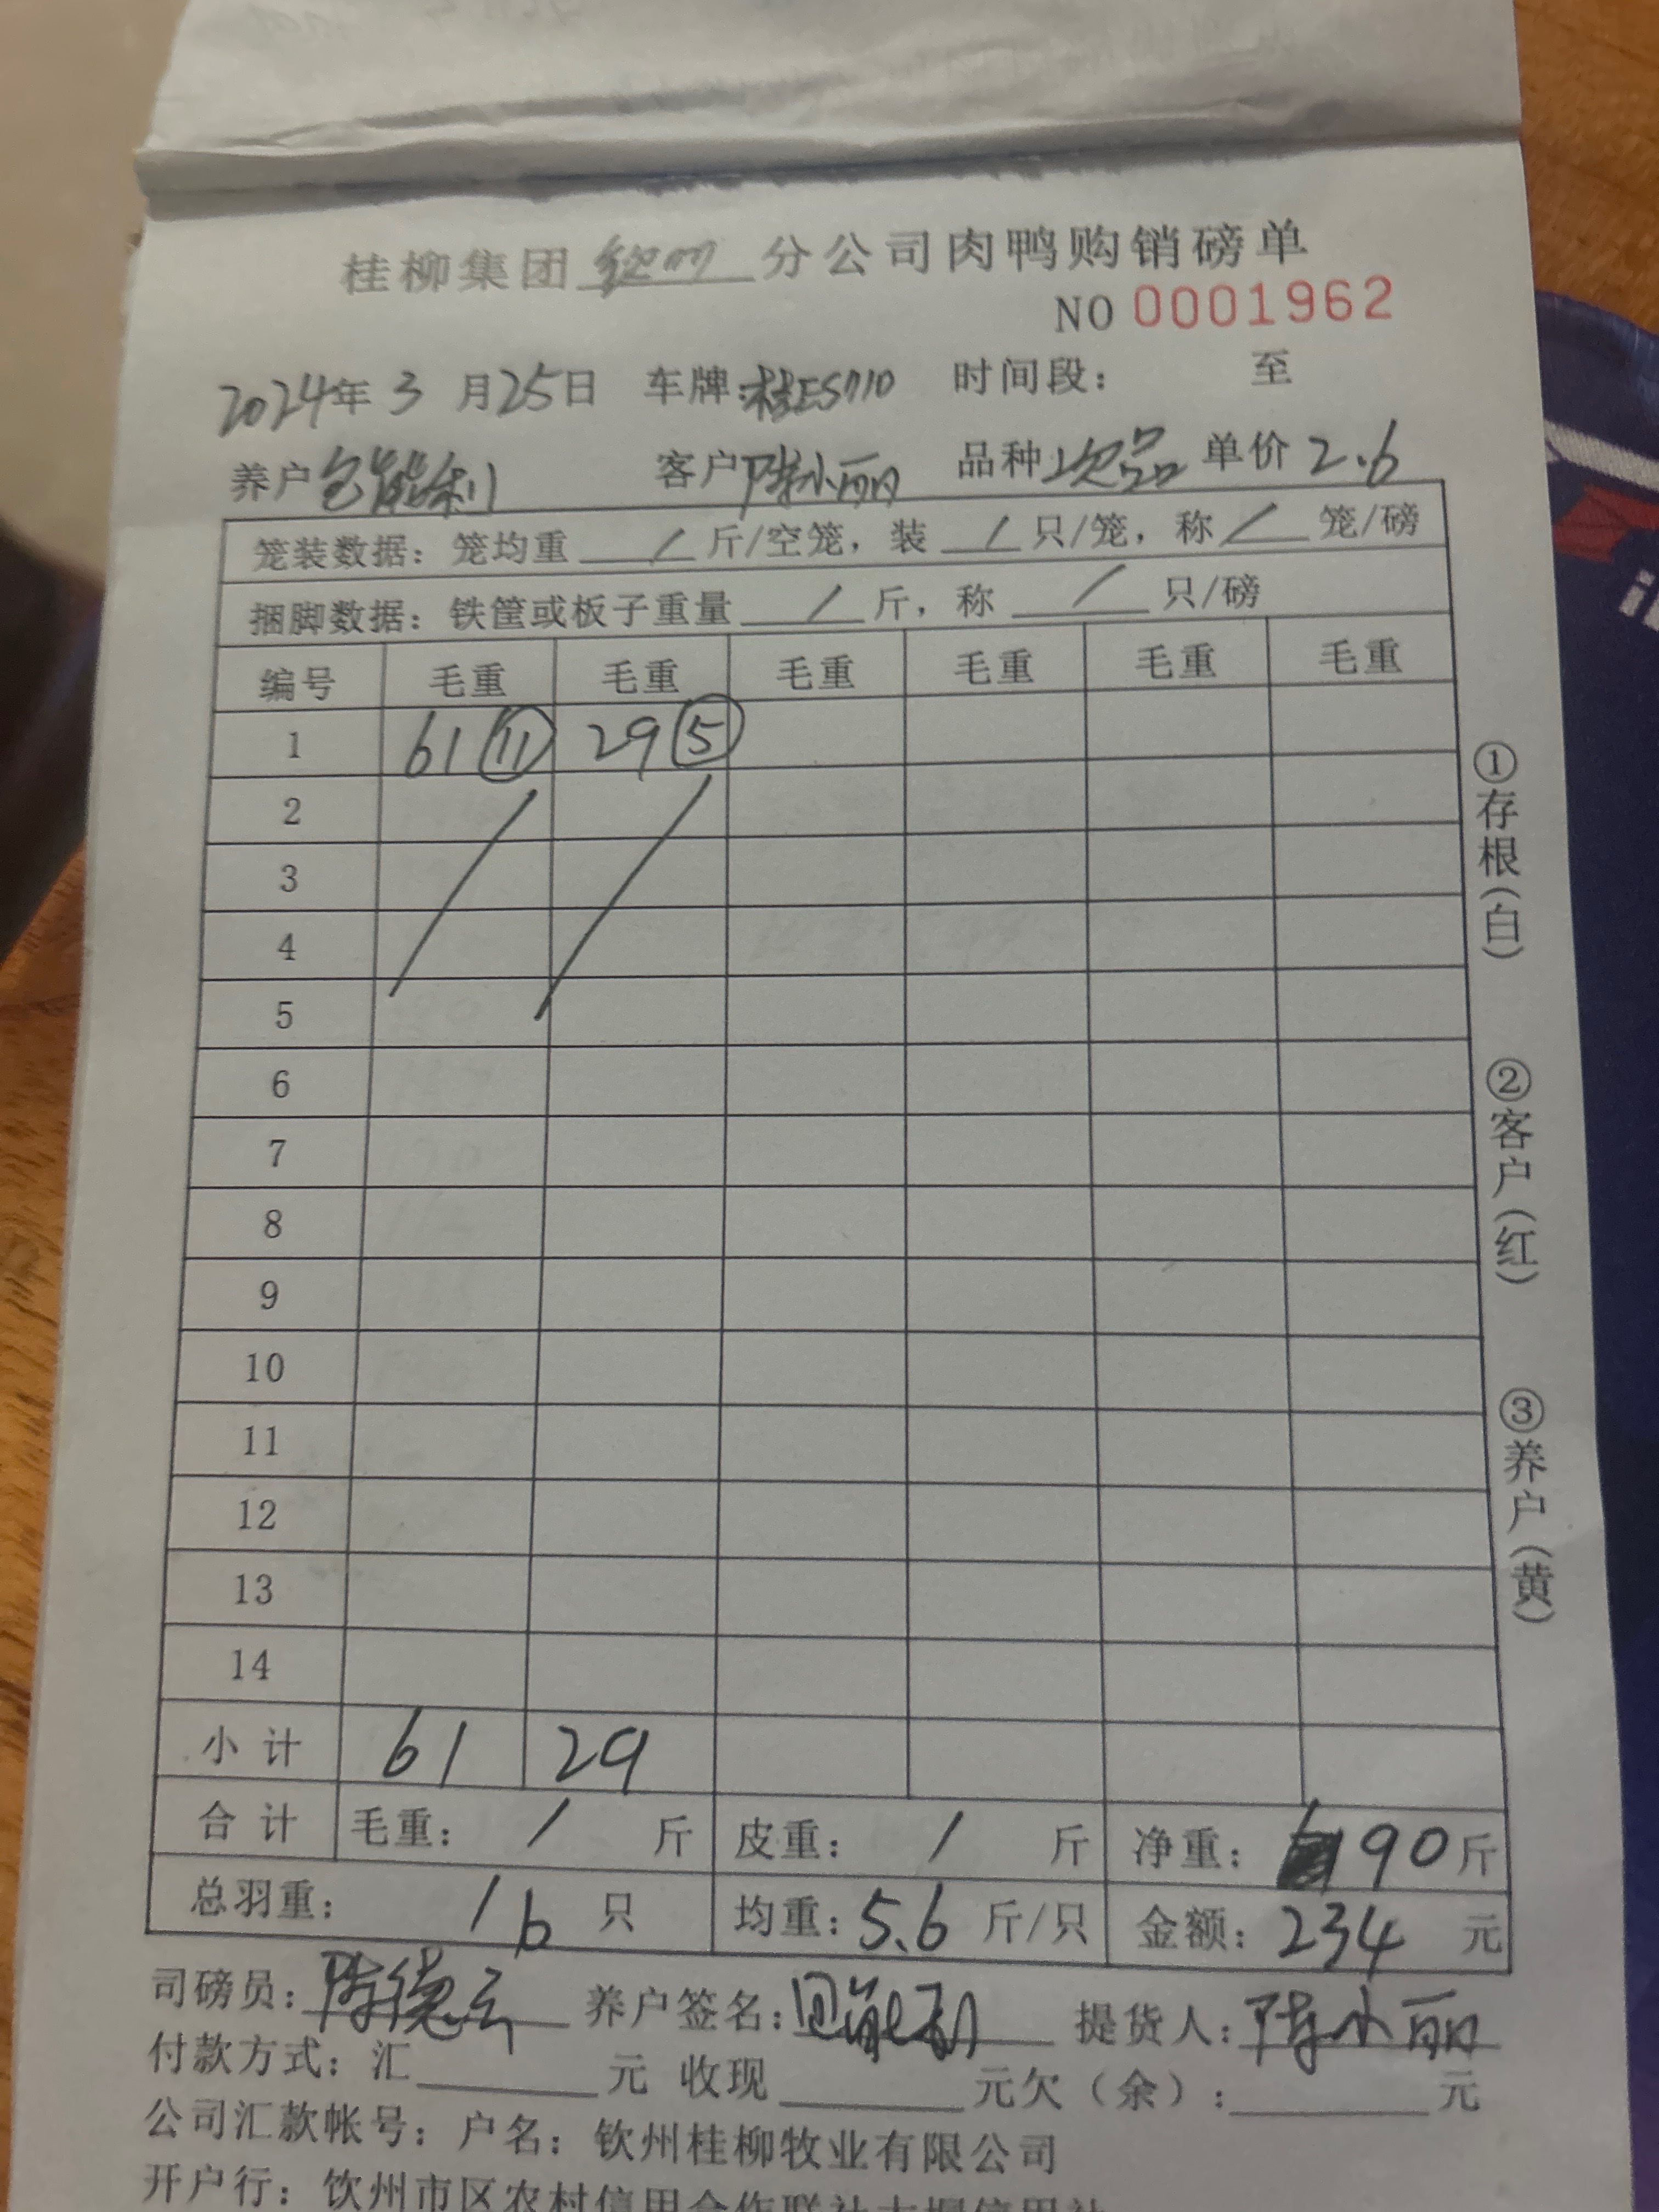 桂柳集团钦州分公司肉鸭购销磅单
NO 0001962
2024年3月25日 车牌:桂ES7710 时间段: 至
养户包能利 客户陈小丽 品种次品 单价2.6
笼装数据: 笼均重 / 斤/空笼, 装 / 只/笼, 称 / 笼/磅
捆脚数据: 铁筐或板子重量 / 斤, 称 / 只/磅
编号 毛重 毛重 毛重 毛重 毛重 毛重
1 61 ⑪ 29 ⑤
2
3
4
5
6
7
8
9
10
11
12
13
14
小计 61 29
合计 毛重: / 斤 皮重: / 斤 净重: 90斤
总羽重: 16 只 均重: 5.6 斤/只 金额: 234 元
司磅员: 陈德云 养户签名: 提货人: 陈小丽
付款方式: 汇 元 收现 元欠(余): 元
公司汇款帐号: 户名: 钦州桂柳牧业有限公司
开户行: 钦州市区农村信用合作联社
①存根(白)
②客户(红)
③养户(黄)